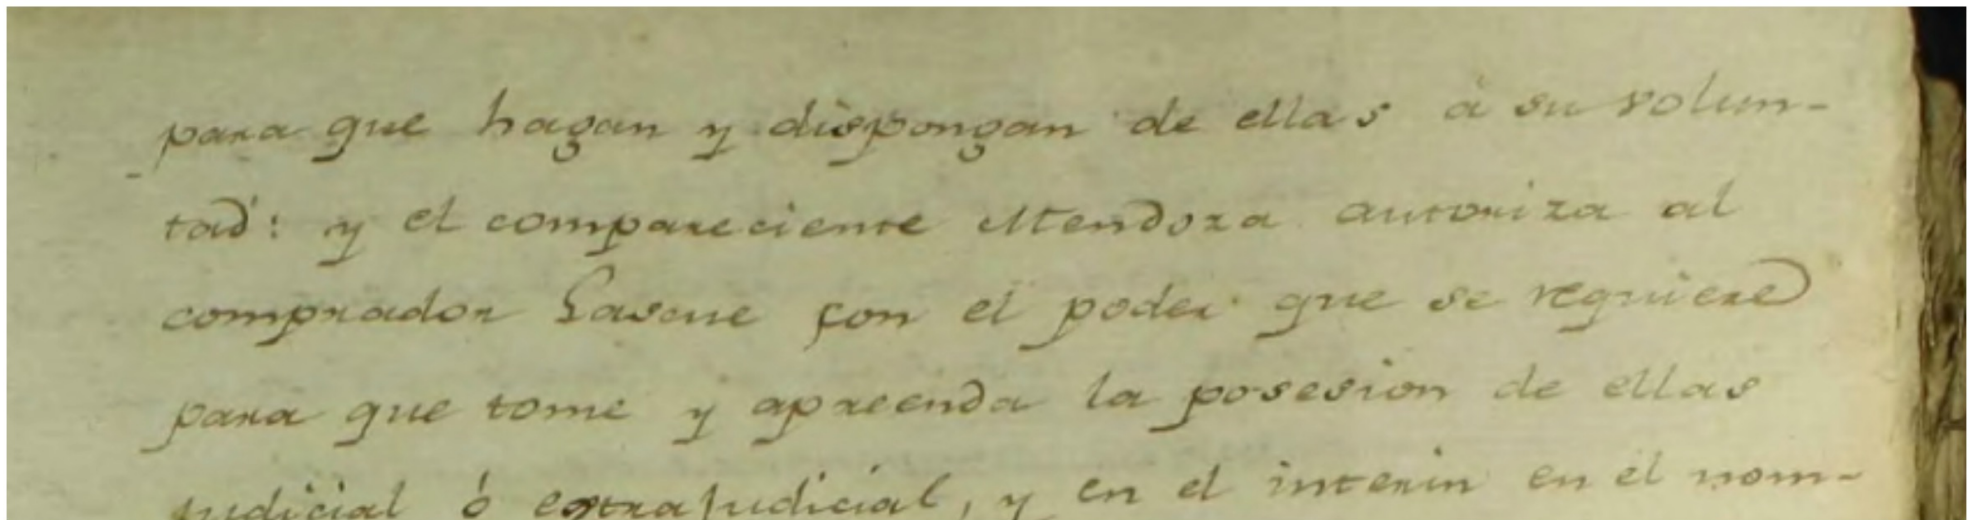 para que hagan y dispongan de ellas á su volun-
tad: y el compareciente Mendoza autoriza al
comprador Lascue con el poder que se requiere
para que tome y apreenda la posesion de ellas
judicial ó extrajudicial, y en el interin en el nom-